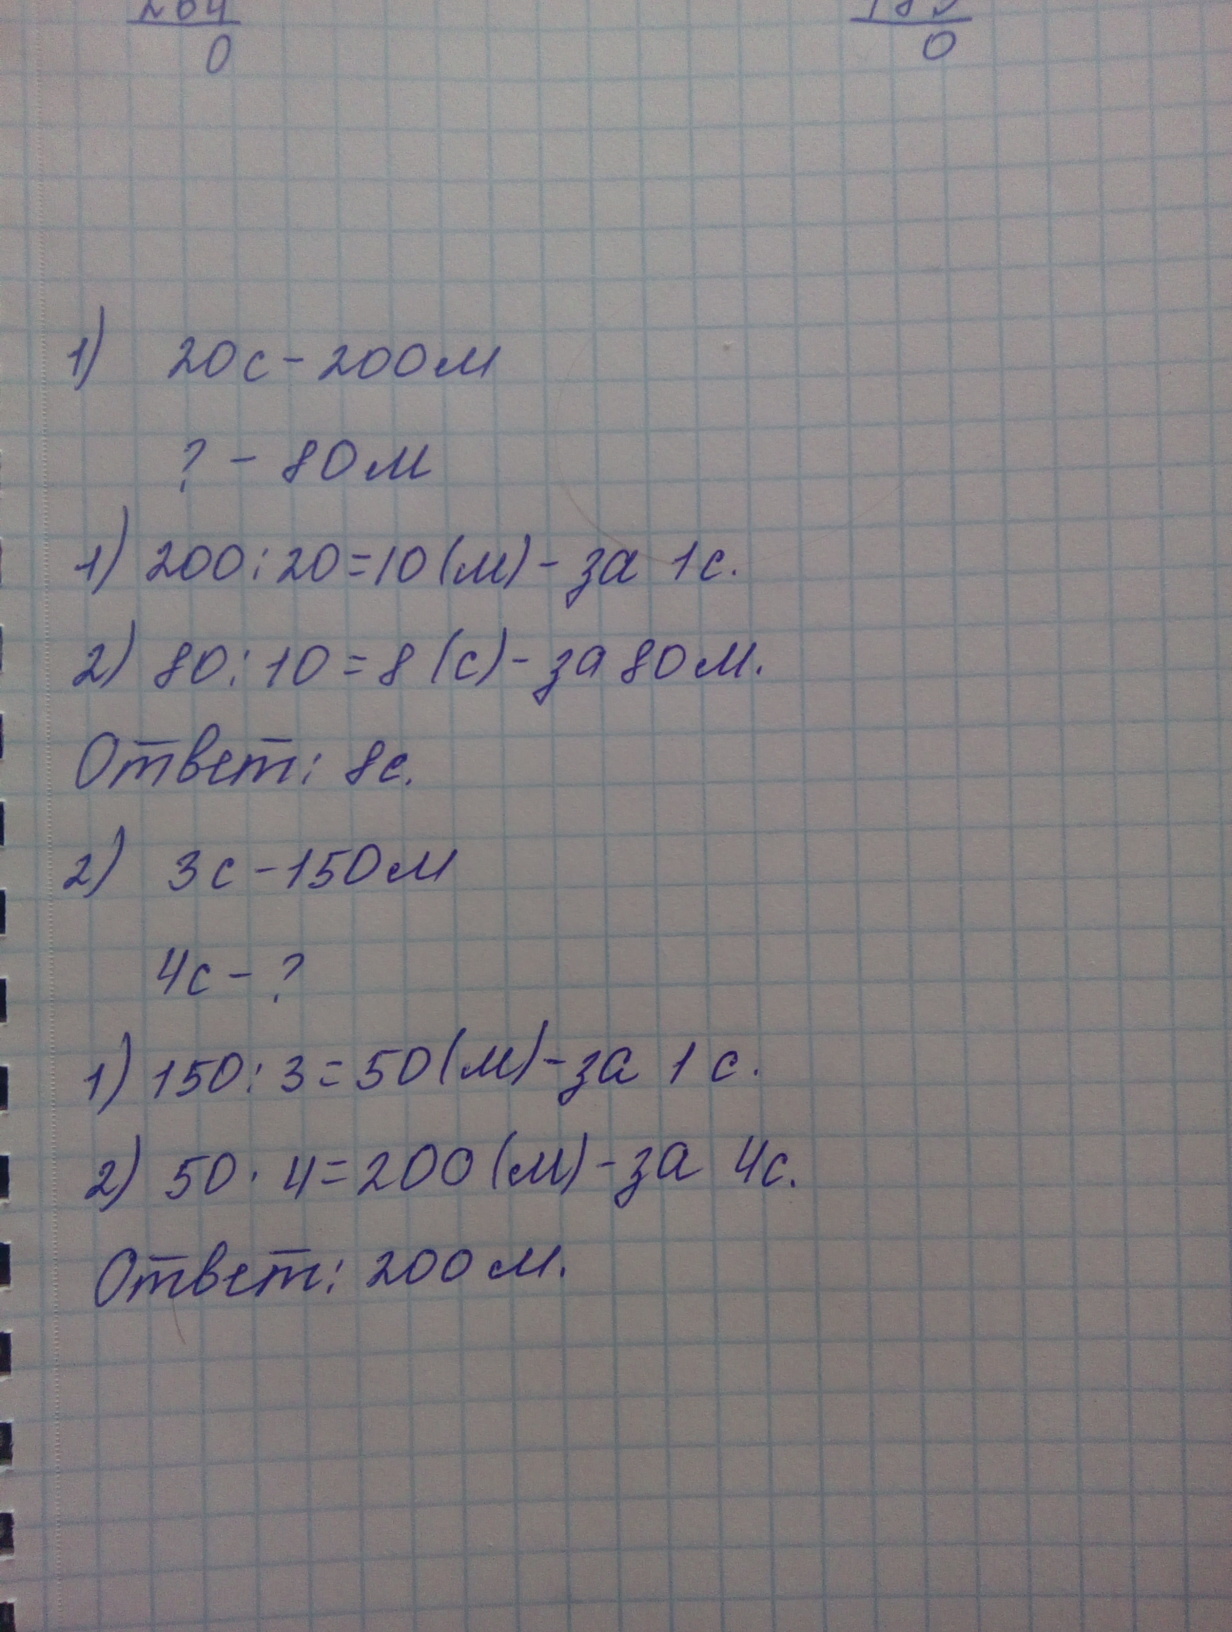 264
0
0
1) 20с - 200м
? - 80м
1) 200 : 20 = 10 (м) - за 1с.
2) 80 : 10 = 8 (с) - за 80м.
Ответ: 8с.
2) 3с - 150м
4с - ?
1) 150 : 3 = 50 (м) - за 1с.
2) 50 · 4 = 200 (м) - за 4с.
Ответ: 200м.